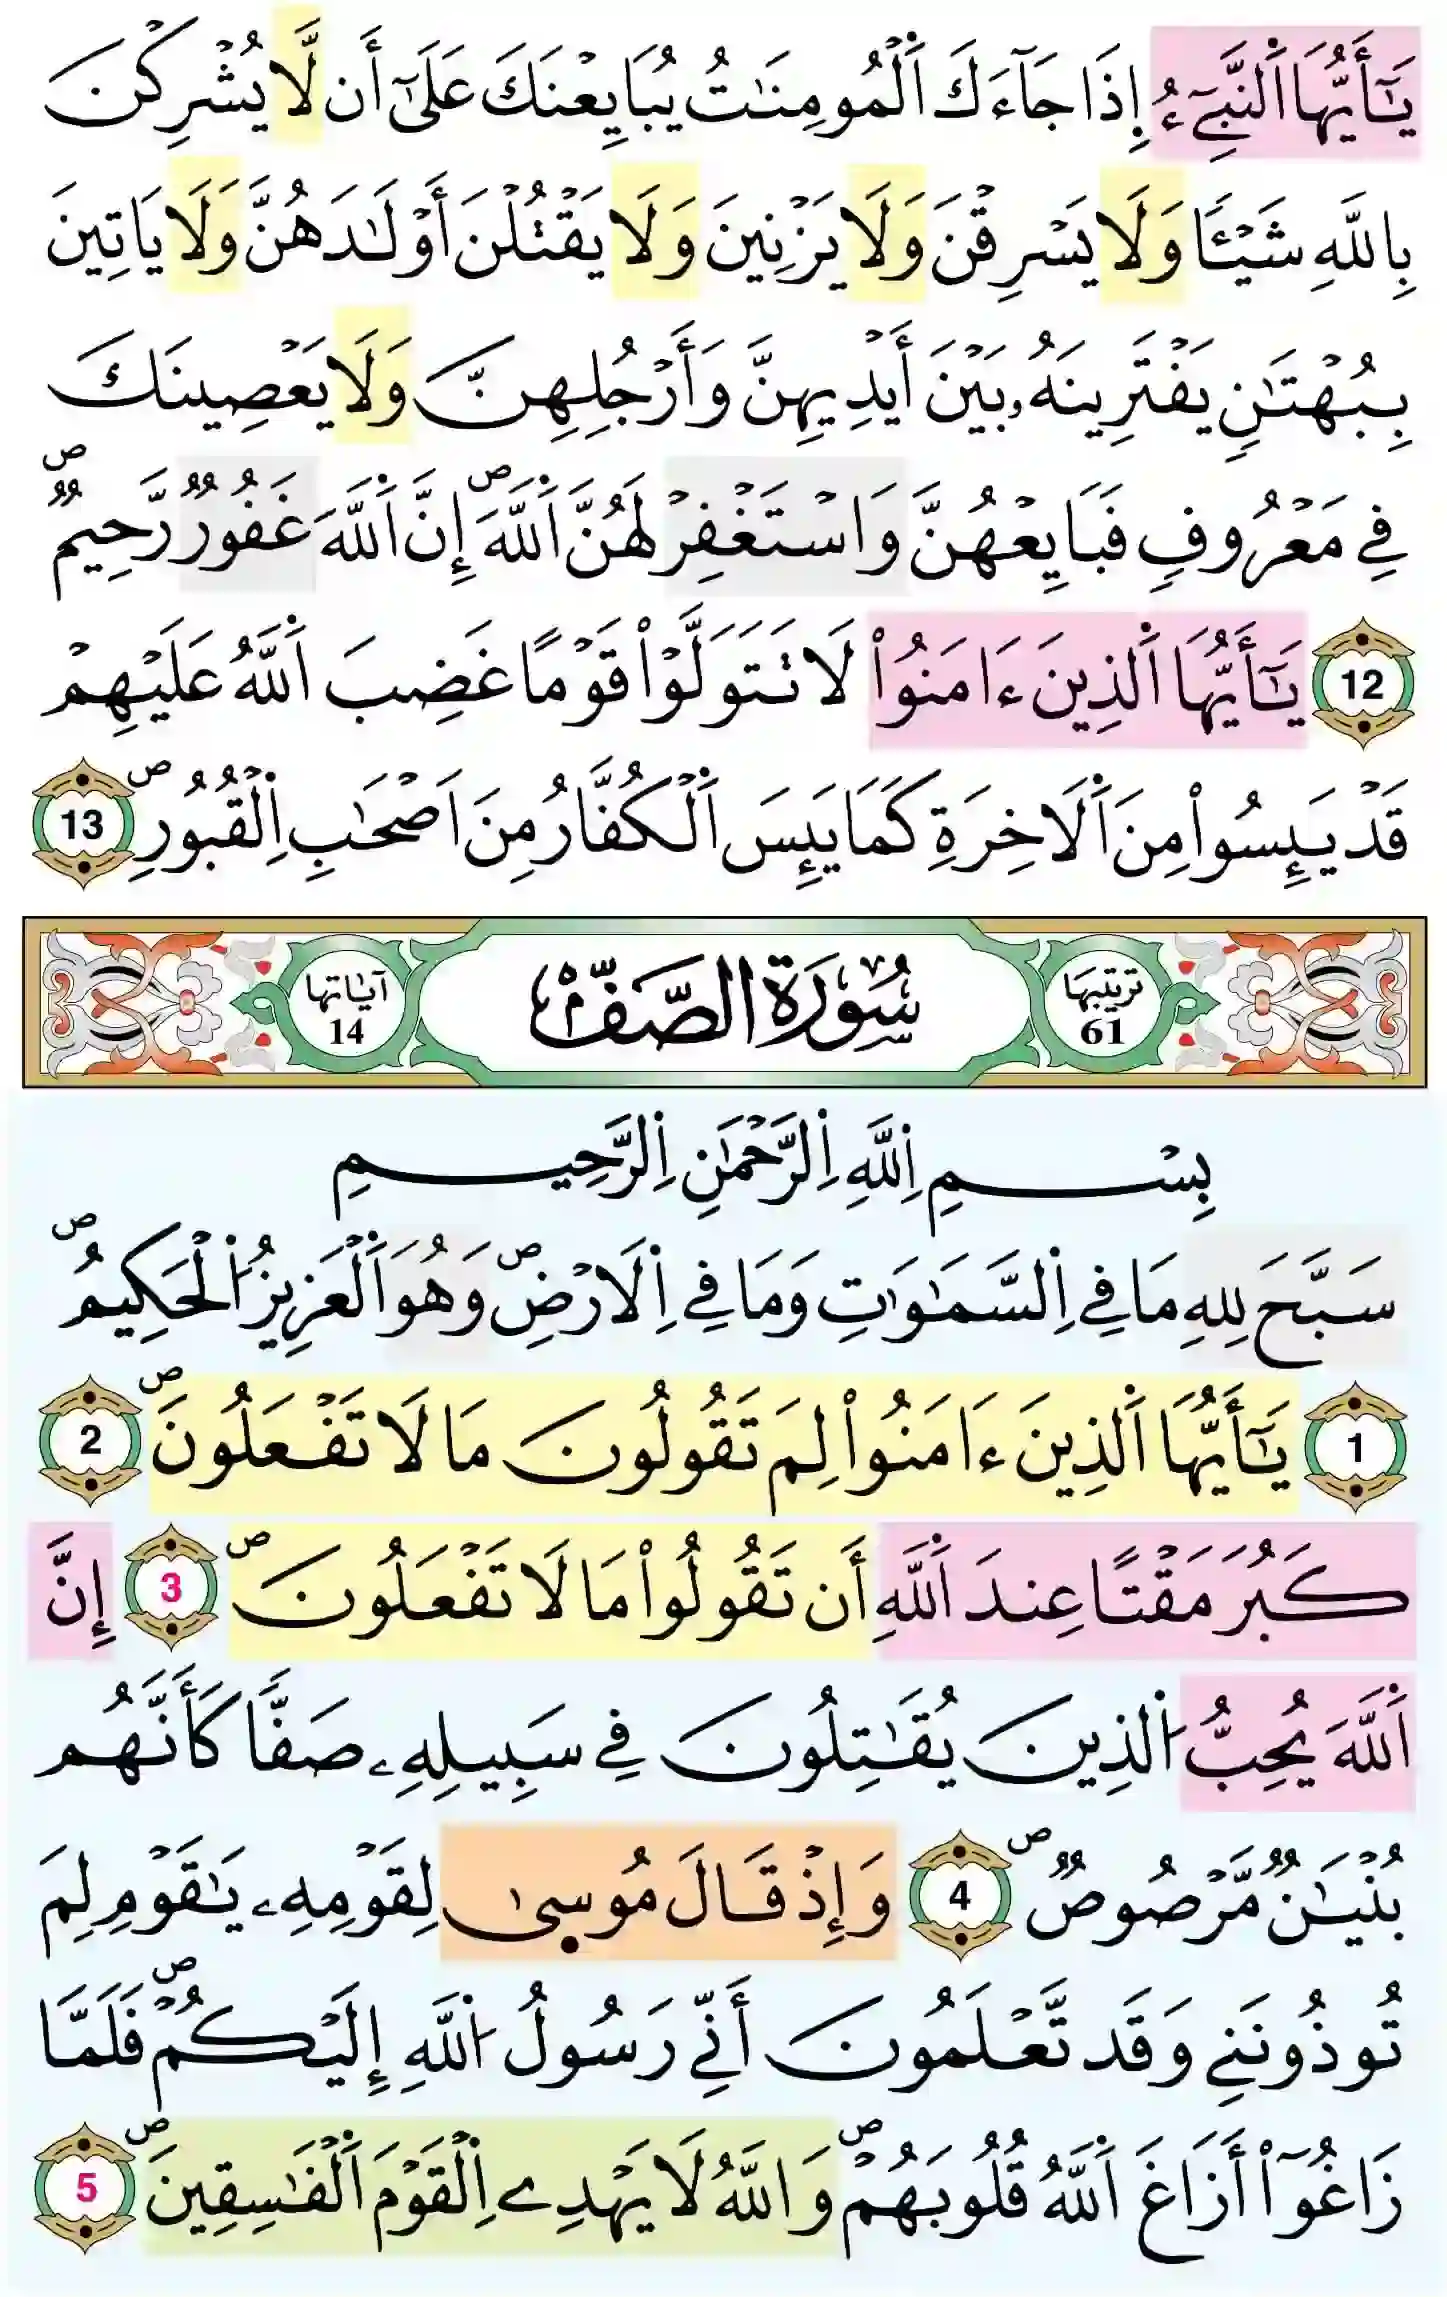 يَٰٓأَيُّهَا اَ۬لنَّبِےٓءُ اِ۪ذَا جَآءَكَ اَ۬لْمُومِنَٰتُ يُبَايِعْنَكَ عَلَيٰٓ أَن لَّا يُشْرِكْنَ
بِاللَّهِ شَيْـٔاً وَلَا يَسْرِقْنَ وَلَا يَزْنِينَ وَلَا يَقْتُلْنَ أَوْلَٰدَهُنَّ وَلَا يَاتِينَ
بِبُهْتَٰنٖ يَفْتَرِينَهُۥ بَيْنَ أَيْدِيهِنَّ وَأَرْجُلِهِنَّ وَلَا يَعْصِينَكَ
فِے مَعْرُوفٖ فَبَايِعْهُنَّ وَاسْتَغْفِرْ لَهُنَّ اَ۬للَّهَۖ إِنَّ اَ۬للَّهَ غَفُورٞ رَّحِيمٞۖ
12 يَٰٓأَيُّهَا اَ۬لذِينَ ءَامَنُواْ لَا تَتَوَلَّوْاْ قَوْماً غَضِبَ اَ۬للَّهُ عَلَيْهِمْ
قَدْ يَئِسُواْ مِنَ اَ۬لَاخِرَةِ كَمَا يَئِسَ اَ۬لْكُفَّارُ مِنَ اَصْحَٰبِ اِ۬لْقُبُورِۖ 13
ترتيبها 61 سُورَةُ الصَّفِّ آيَاتها 14
بِسْمِ اِ۬للَّهِ اِ۬لرَّحْمَٰنِ اِ۬لرَّحِيمِ
سَبَّحَ لِلهِ مَا فِے اِ۬لسَّمَٰوَٰتِ وَمَا فِے اِ۬لَارْضِۖ وَهُوَ اَ۬لْعَزِيزُ اُ۬لْحَكِيمُۖ
1 يَٰٓأَيُّهَا اَ۬لذِينَ ءَامَنُواْ لِمَ تَقُولُونَ مَا لَا تَفْعَلُونَۖ 2
كَبُرَ مَقْتاً عِندَ اَ۬للَّهِ أَن تَقُولُواْ مَا لَا تَفْعَلُونَۖ 3 إِنَّ
اَ۬للَّهَ يُحِبُّ اُ۬لذِينَ يُقَٰتِلُونَ فِے سَبِيلِهِۦ صَفّاٗ كَأَنَّهُم
بُنْيَٰنٞ مَّرْصُوصٞۖ 4 وَإِذْ قَالَ مُوس۪يٰ لِقَوْمِهِۦ يَٰقَوْمِ لِمَ
تُوذُونَنِے وَقَد تَّعْلَمُونَ أَنِّے رَسُولُ اُ۬للَّهِ إِلَيْكُمْۖ فَلَمَّا
زَاغُوٓاْ أَزَاغَ اَ۬للَّهُ قُلُوبَهُمْۖ وَاللَّهُ لَا يَهْدِے اِ۬لْقَوْمَ اَ۬لْفَٰسِقِينَۖ 5